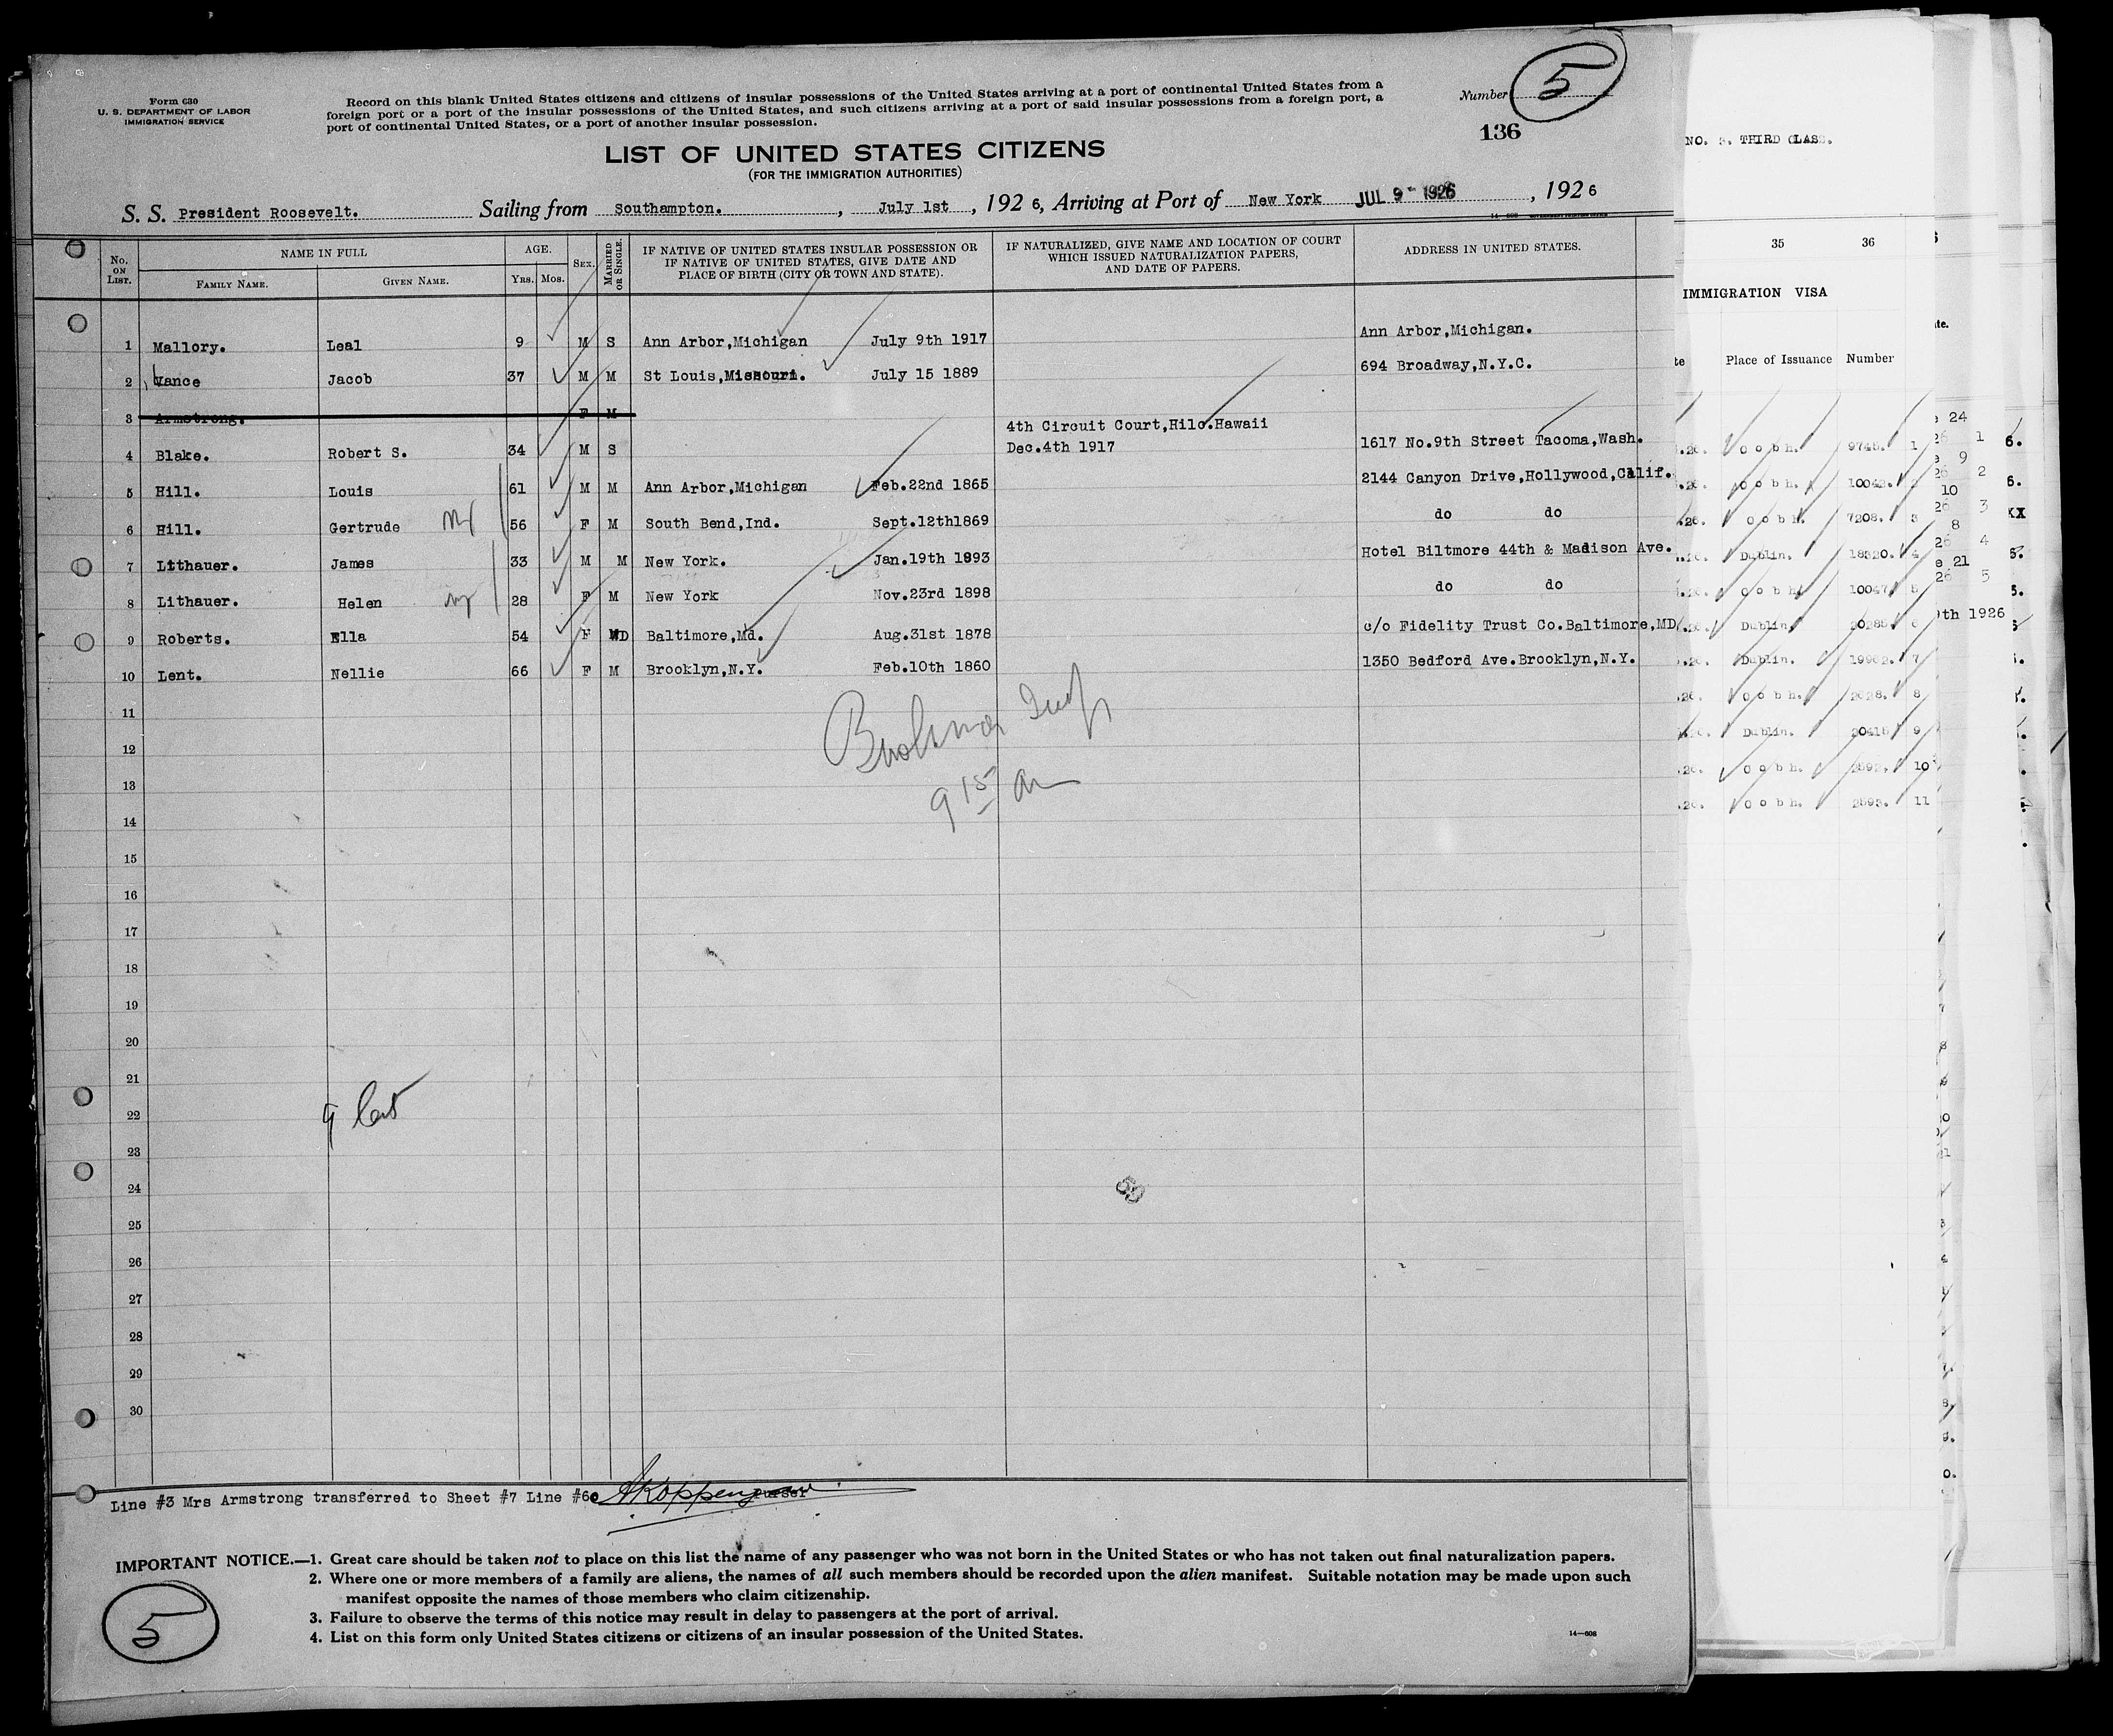 Form 630
U. S. DEPARTMENT OF LABOR
IMMIGRATION SERVICE
Record on this blank United States citizens and citizens of insular possessions of the United States arriving at a port of continental United States from a
foreign port or a port of the insular possessions of the United States, and such citizens arriving at a port of said insular possessions from a foreign port, a
port of continental United States, or a port of another insular possession.
Number 5
136
LIST OF UNITED STATES CITIZENS
(FOR THE IMMIGRATION AUTHORITIES)
S. S. President Roosevelt. Sailing from Southampton. , July 1st , 192 6, Arriving at Port of New York JUL 9 - 1926 , 192 6
No. ON LIST. NAME IN FULL FAMILY NAME. GIVEN NAME. AGE. YRS. MOS. SEX. MARRIED OR SINGLE. IF NATIVE OF UNITED STATES INSULAR POSSESSION OR IF NATIVE OF UNITED STATES, GIVE DATE AND PLACE OF BIRTH (CITY OR TOWN AND STATE). IF NATURALIZED, GIVE NAME AND LOCATION OF COURT WHICH ISSUED NATURALIZATION PAPERS, AND DATE OF PAPERS. ADDRESS IN UNITED STATES.
1 Mallory. Leal 9 M S Ann Arbor,Michigan July 9th 1917 Ann Arbor,Michigan.
2 Vance Jacob 37 M M St Louis,Missouri. July 15 1889 694 Broadway,N.Y.C.
3 Armstrong. F M
4 Blake. Robert S. 34 M S 4th Circuit Court,Hilo.Hawaii Dec.4th 1917 1617 No.9th Street Tacoma,Wash.
5 Hill. Louis 61 M M Ann Arbor,Michigan Feb.22nd 1865 2144 Canyon Drive,Hollywood,Calif.
6 Hill. Gertrude 56 F M South Bend,Ind. Sept.12th1869 do do
7 Lithauer. James 33 M M New York. Jan.19th 1893 Hotel Biltmore 44th & Madison Ave.
8 Lithauer. Helen 28 F M New York Nov.23rd 1898 do do
9 Roberts. Ella 54 F WD Baltimore,Md. Aug.31st 1878 c/o Fidelity Trust Co.Baltimore,MD
10 Lent. Nellie 66 F M Brooklyn,N.Y. Feb.10th 1860 1350 Bedford Ave.Brooklyn,N.Y.
11
12
13
9 15
14
15
16
17
18
19
20
21
22
23
24
25
26
27
28
29
30
59
Line #3 Mrs Armstrong transferred to Sheet #7 Line #6
IMPORTANT NOTICE.—1. Great care should be taken not to place on this list the name of any passenger who was not born in the United States or who has not taken out final naturalization papers.
2. Where one or more members of a family are aliens, the names of all such members should be recorded upon the alien manifest. Suitable notation may be made upon such
manifest opposite the names of those members who claim citizenship.
3. Failure to observe the terms of this notice may result in delay to passengers at the port of arrival.
4. List on this form only United States citizens or citizens of an insular possession of the United States.
14—608
5
THIRD CLASS.
35 36
IMMIGRATION VISA
Place of Issuance Number
C o b h. 9745. 1
C o b h. 10042. 2
C o b h. 7208. 3
Dublin. 18320. 4
C o b h. 10047 5
Dublin. 20285. 6
Dublin. 19962. 7
C o b h. 2628. 8
Dublin. 20415 9
C o b h. 2592. 10
C o b h. 2593. 11
9th 1926